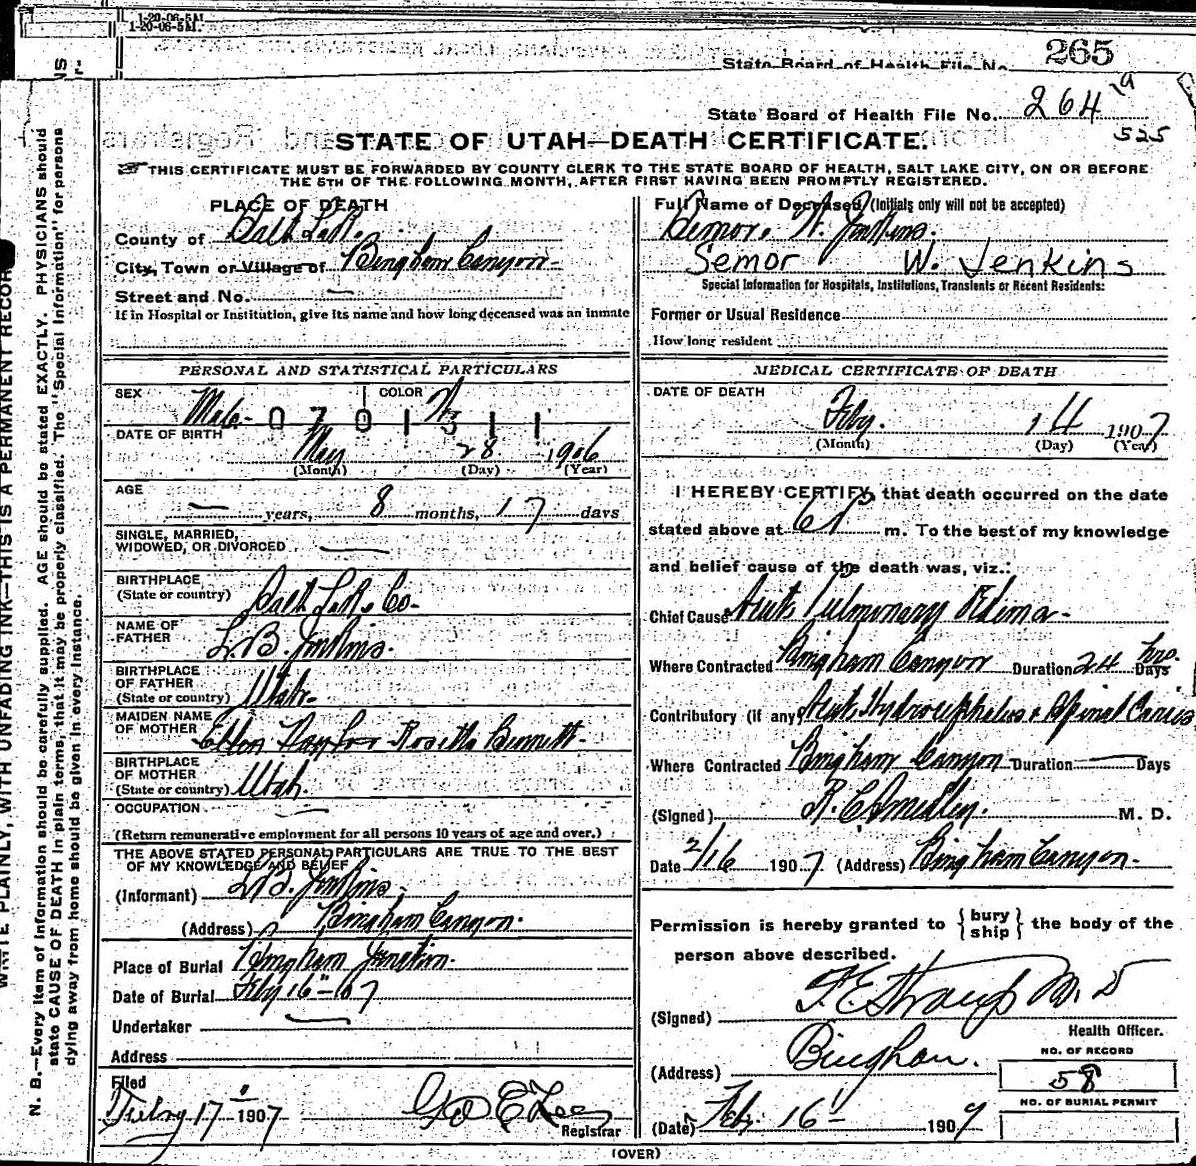 1-20-06-5M.
1-20-06-5M.
State Board of Health File No. 265
State Board of Health File No. 264 a
525
STATE OF UTAH—DEATH CERTIFICATE.
THIS CERTIFICATE MUST BE FORWARDED BY COUNTY CLERK TO THE STATE BOARD OF HEALTH, SALT LAKE CITY, ON OR BEFORE
THE 5TH OF THE FOLLOWING MONTH, AFTER FIRST HAVING BEEN PROMPTLY REGISTERED.
PLACE OF DEATH
County of Salt Lake.
City, Town or Village of Bingham Canyon
Street and No. —
If in Hospital or Institution, give its name and how long deceased was an inmate
PERSONAL AND STATISTICAL PARTICULARS
SEX Male COLOR W
0701311
DATE OF BIRTH
May 28 1906
(Month) (Day) (Year)
AGE
— years, 8 months, 17 days
SINGLE, MARRIED,
WIDOWED, OR DIVORCED —
BIRTHPLACE
(State or country) Salt Lake Co.
NAME OF
FATHER L. B. Jenkins.
BIRTHPLACE
OF FATHER
(State or country) Utah.
MAIDEN NAME
OF MOTHER Ellen Naylor Rosetta Bennett.
BIRTHPLACE
OF MOTHER
(State or country) Utah.
OCCUPATION —
(Return remunerative employment for all persons 10 years of age and over.)
THE ABOVE STATED PERSONAL PARTICULARS ARE TRUE TO THE BEST
OF MY KNOWLEDGE AND BELIEF
(Informant) L. B. Jenkins.
(Address) Bingham Canyon.
Place of Burial Bingham Junction.
Date of Burial Feby 16" 107
Undertaker —
Address
Filed
Feby 17" 1907 Geo E Lee
Registrar
Full Name of Deceased (Initials only will not be accepted)
Semor. W. Jenkins.
Semor W. Jenkins
Special Information for Hospitals, Institutions, Transients or Recent Residents:
Former or Usual Residence
How long resident
MEDICAL CERTIFICATE OF DEATH
DATE OF DEATH
Feby. 14 1907
(Month) (Day) (Year)
I HEREBY CERTIFY, that death occurred on the date
stated above at 6 P m. To the best of my knowledge
and belief cause of the death was, viz.:
Chief Cause Acute Pulmonary Edima
Where Contracted Bingham Canyon Duration 24 hrs. Days
Contributory (if any) Acute Hydrocephelus & Spinal Caries
Where Contracted Bingham Canyon Duration — Days
(Signed) M. D.
Date 2/16 1907 (Address) Bingham Canyon.
Permission is hereby granted to {bury ship} the body of the
person above described.
(Signed) F. E. Straup M. D
Health Officer.
(Address) Bingham.
NO. OF RECORD
58
NO. OF BURIAL PERMIT
(Date) Feb. 16 1907
(OVER)
WRITE PLAINLY, WITH UNFADING INK—THIS IS A PERMANENT RECORD
N. B.—Every item of information should be carefully supplied. AGE should be stated EXACTLY. PHYSICIANS should
state CAUSE OF DEATH in plain terms, that it may be properly classified. The "Special Information" for persons
dying away from home should be given in every instance.